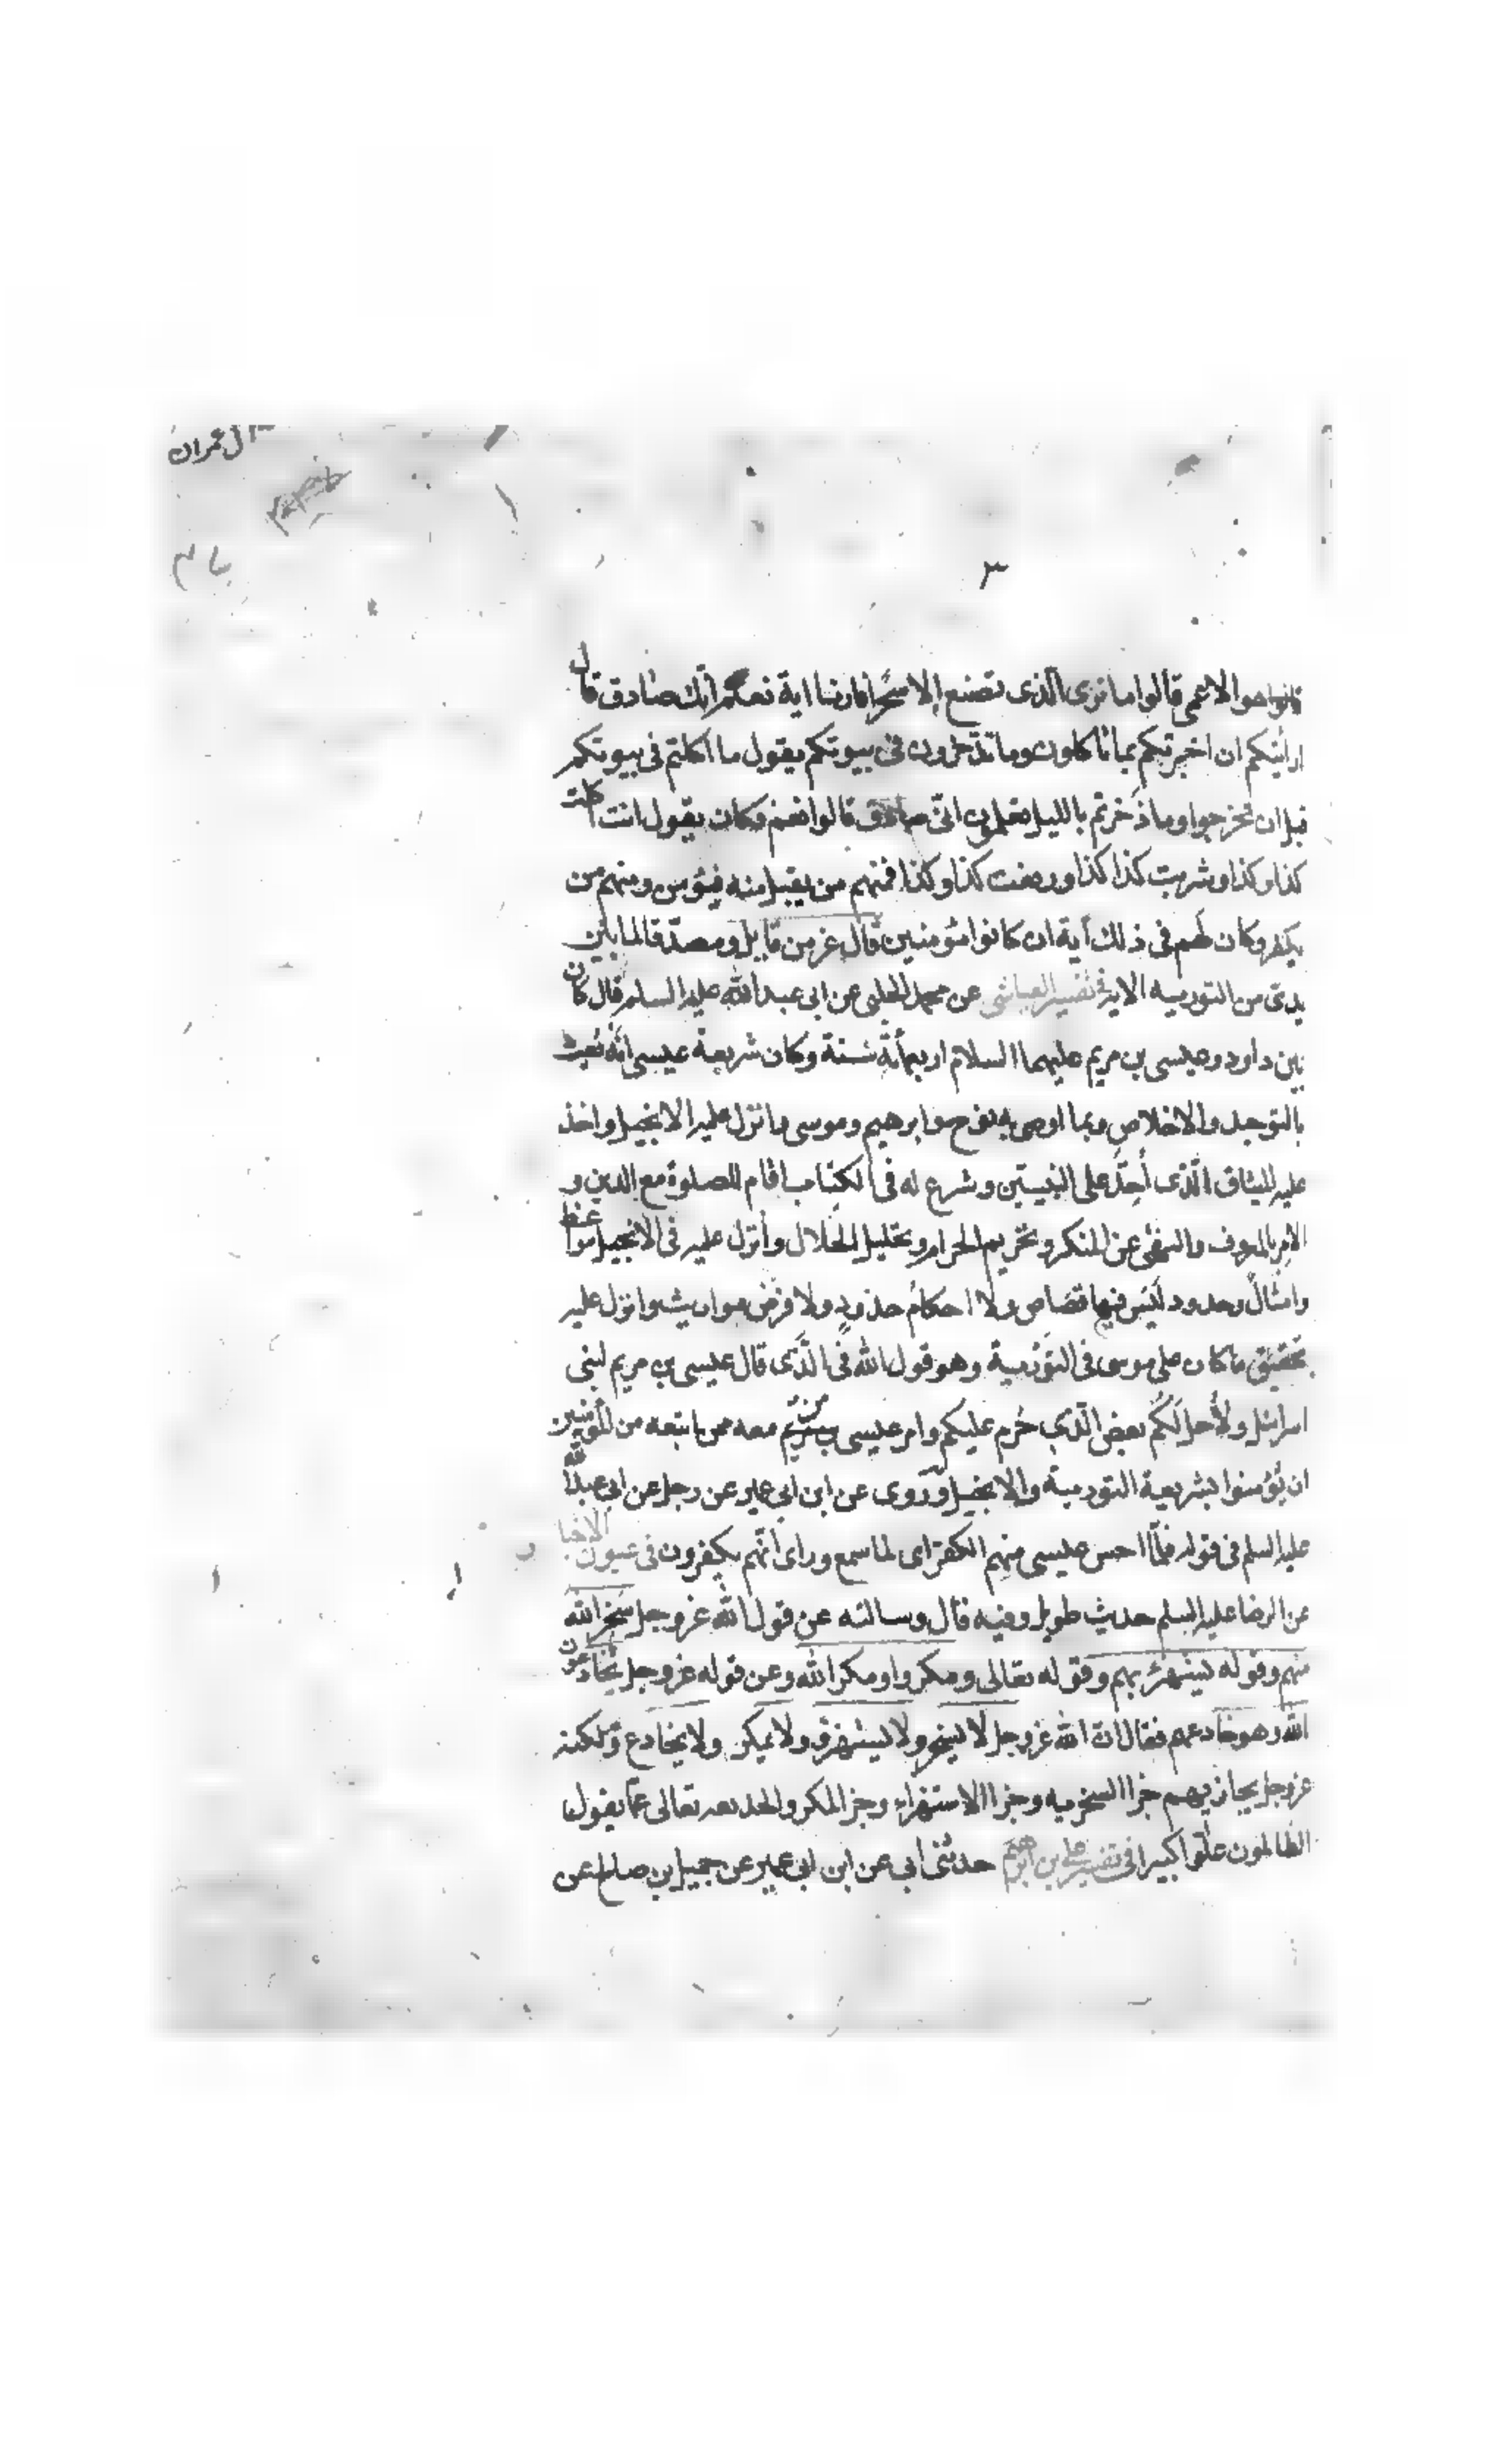 آل عمران
٣
قالوا هو الاعمى قالوا ما نرى الذى تصنع الا سحرا فارنا اية نعلم انك صادق قال
ارايتكم ان اخبرتكم بما تاكلون وما تدخرون فى بيوتكم يقول ما اكلتم فى بيوتكم
قبل ان تخرجوا وما ذخرتم بالليل تعلمون انى صادق قالوا نعم فكان يقول انت اكلت
كذا وكذا وشربت كذا كذا ورفعت كذا وكذا فمنهم من يقبل منه فيؤمن ومنهم من
يكفر وكان لهم فى ذلك آية ان كانوا مؤمنين قال عز من قايل ومصدقا لما بين
يدى من التورية الاية فى تفسير العياشى عن محمد الحلبى عن ابى عبد الله عليه السلم قال كان
بين داود وعيسى بن مريم عليهما السلام اربعمأئة سنة وكان شريعة عيسى انه بعث
بالتوحيد والاخلاص وبما اوصى به نوح وابرهيم وموسى وانزل عليه الانجيل واخذ
عليه الميثاق الذى أخذ على النبيين وشرع له فى الكتاب اقام الصلوة مع الدين و
الامر بالمعروف والنهى عن المنكر وتحريم الحرام وتحليل الحلال وأنزل عليه فى الانجيل مواعظ
وامثال وحدود ليس فيها قصاص ولا احكام حدود ولا فرض مواريث وانزل عليه
تخفيف ما كان على موسى فى التورية وهو قول الله فى الذى قال عيسى بن مريم لبنى
اسرائيل ولأحل لكم بعض الذى حرم عليكم وامر عيسى من معه ممن اتبعه من المؤمنين
ان يؤمنوا بشريعة التورية والانجيل وروى عن ابن ابى عمير عن رجل عن ابى عبد الله
عليه السلم فى قوله فلما احس عيسى منهم الكفر اى لما سمع وراى انهم يكفرون فى عيون الاخبار
عن الرضا عليه السلم حديث طويل وفيه قال وسالته عن قول الله عز وجل سخر الله
منهم وقوله يستهزئ بهم وقوله تعالى ومكروا ومكر الله وعن قوله عز وجل يخادعون
الله وهو خادعهم فقال ان الله عز وجل لا يسخر ولا يستهزئ ولا يمكر ولا يخادع ولكنه
عز وجل يجازيهم جزا السخرية وجزا الاستهزاء وجزا المكر والخديعه تعالى عما يقول
الظالمون علوا كبيرا فى تفسير على بن ابرهيم حدثنى أبى عن ابن ابى عمير عن جميل بن صالح عن